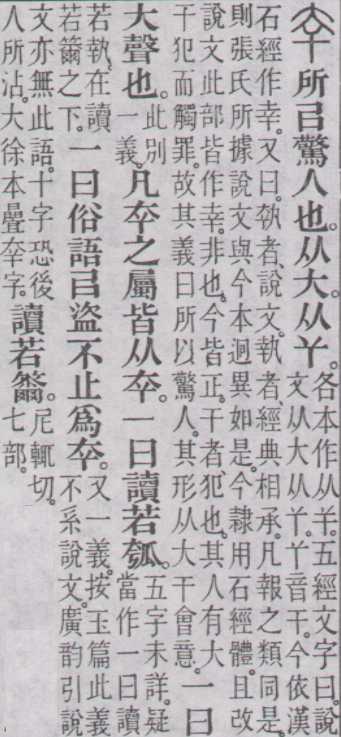 㚔所㠯驚人也。从大。从𢆉。
各本作从𢆉。五經文字曰。說
文从大从𢆉。𢆉音干。今依漢
石經作幸。又曰。𡘺者、說文。執者、經典相承。凡報之類同是。
則張氏所據說文與今本迥異如是。今隷用石經體。且改
說文此部皆作幸。非也。今皆正。干者、犯也。其人有大
干犯而觸罪。故其義曰所以驚人。其形从大干會意。
一曰
大聲也。
此別
一義。
凡㚔之屬皆从㚔。一曰讀若瓠。
五字未詳。疑
當作一曰讀
若執。在讀
若籋之下。
一曰俗語㠯盜不止爲㚔。
又一義。按玉篇此義
不系說文。廣韵引說
文亦無此語。十字恐後
人所沾。大徐本疊㚔字。
讀若籋。
尼輒切。
七部。